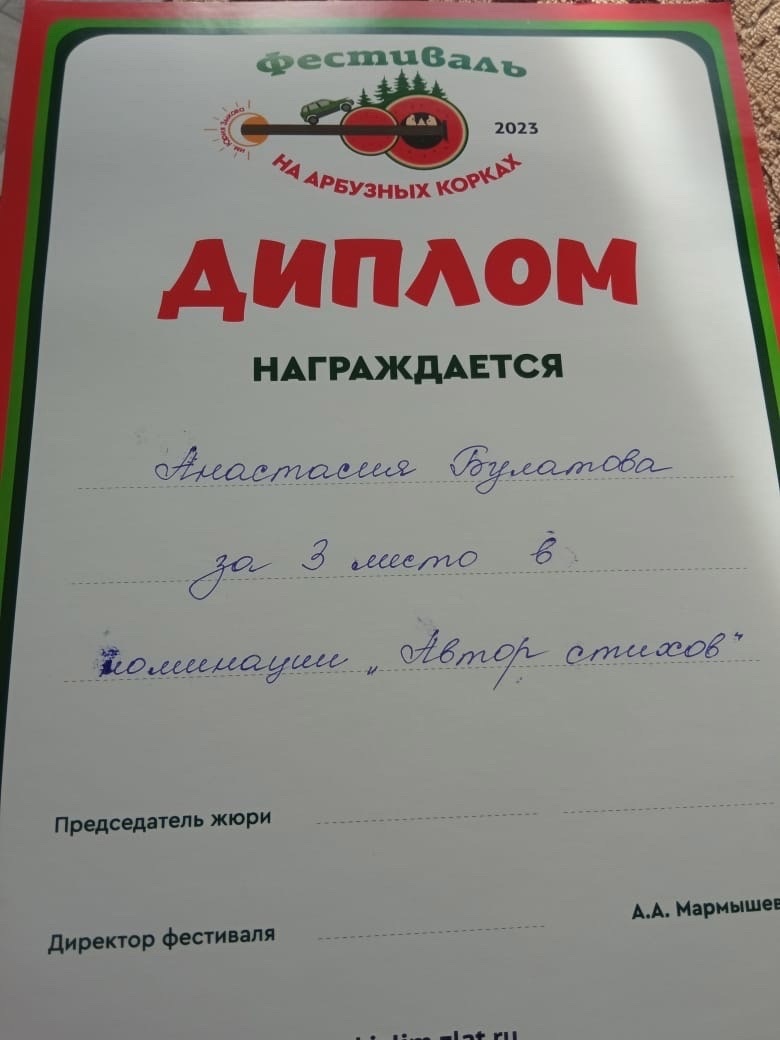 Фестиваль
им. Юрия Зыкова
2023
НА АРБУЗНЫХ КОРКАХ
ДИПЛОМ
НАГРАЖДАЕТСЯ
Анастасия Булатова
за 3 место в
номинации „Автор стихов"
Председатель жюри
Директор фестиваля
А.А. Мармышев